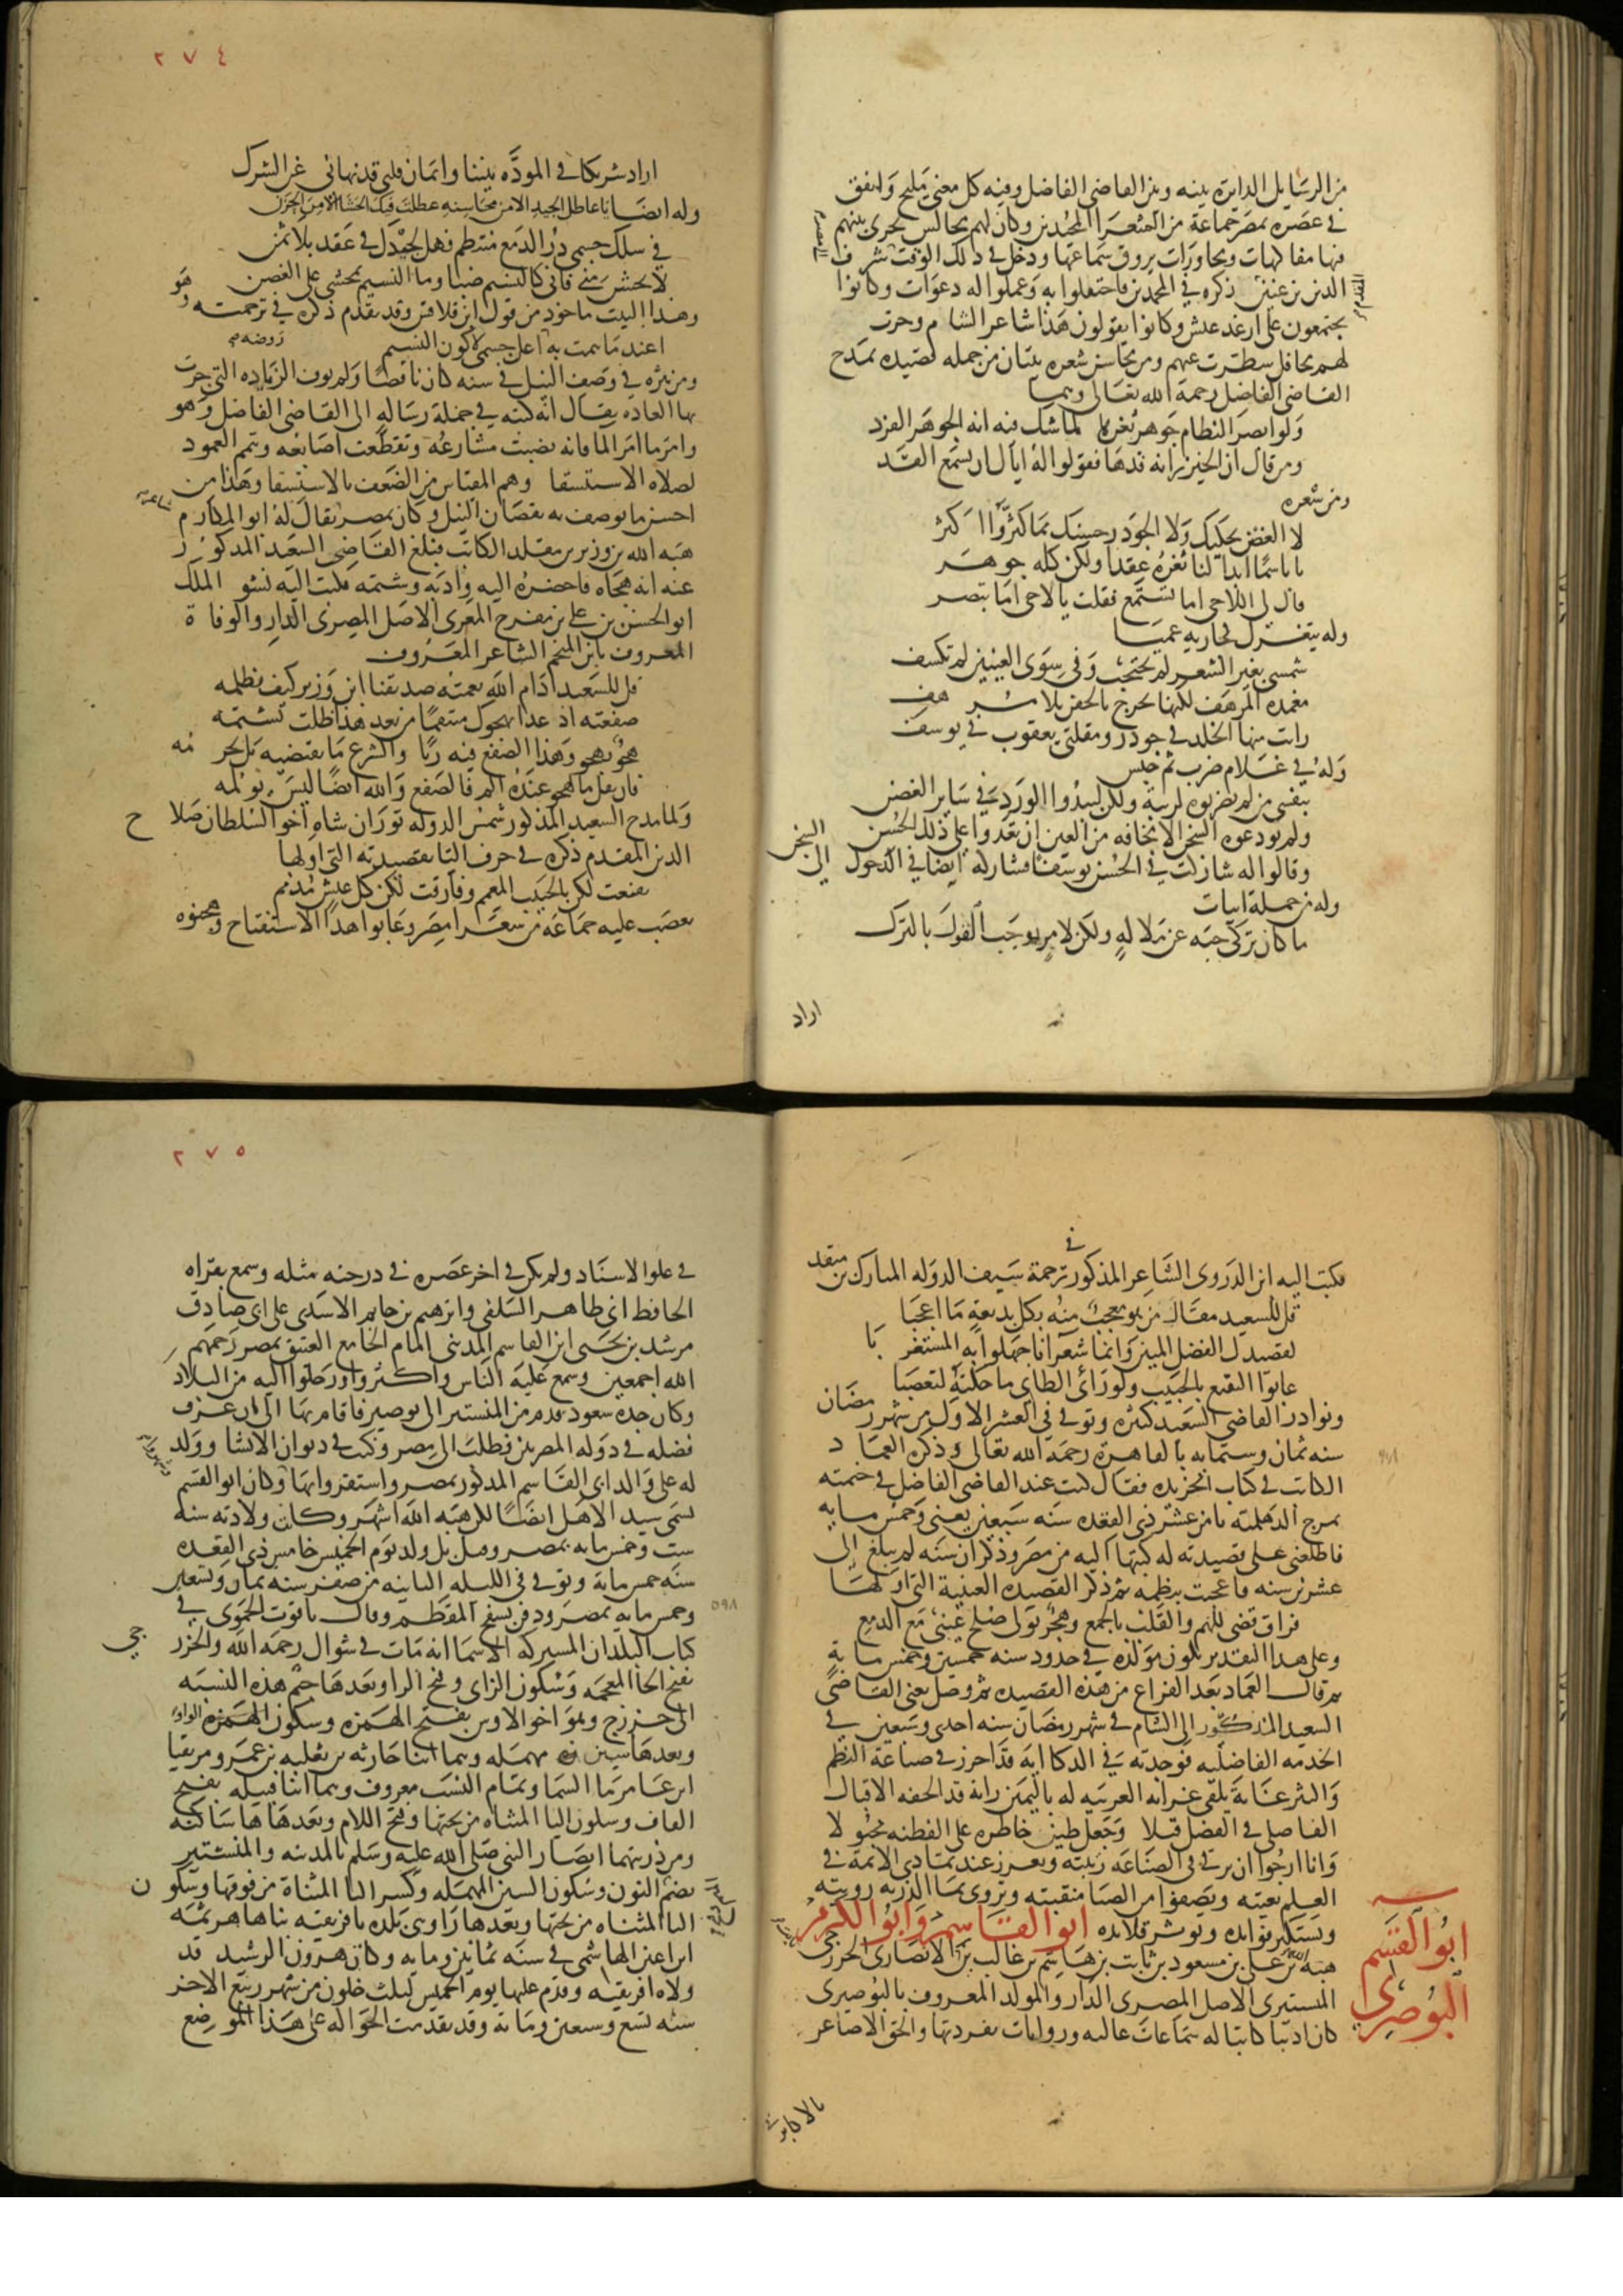 من الرسايل الدايرة بينه وبين القاضي الفاضل وفيه كل معنى مليح واتفق
في عصره بمصر جماعة من الشعرا المجيدين وكان لهم مجالس تجري بينهم
فيها مفاكهات ومحاورات يروق سماعها ودخل في ذلك الوقت شرف
الدين بن عنين ذكره في المحمدين فاحتفلوا به وعملوا له دعوات وكانوا
المقدم
يجتمعون على ارغد عيش وكانوا يقولون هذا شاعر الشام وجرت
لهم محافل سطرت عنهم ومن محاسن شعره بيتان من جملة قصيدة يمدح
القاضي الفاضل رحمه الله تعالى وهما
ولو ابصر النظام جوهر ثغرها لما شك فيه انه الجوهر الفرد
ومن قال ان الخيزرانة قدها فقولوا له اياك ان يسمع القد
ومن شعره
لا الغصن يحكيك ولا الجوذر حسنك مما كثروا اكثر
يا باسما ابدا لنا ثغره عقدا ولكن كله جوهر
قال لي اللاحي اما تستمع فقلت يا لاحي اما تبصر
وله يتغزل بجارية عميا
شمس بغير الشعر لم تحتجب وفي سوى العينين لم تكسف
مغمدة المرهف لكنها تجرح بالجفن بلا مرهف
رايت منها الخلد في جوذر ومقلتي يعقوب في يوسف
وله في غلام ضرب ثم حبس
بنفسي من لم يضربوه لريبة ولكن ليبدوا الورد في ساير الغصن
ولم يودعوه السجن الا مخافة من العين ان تعدوا على ذلك الحسن
وقالوا له شاركت في الحسن يوسفا فشاركه ايضا في الدخول الى السجن
وله من جملة ابيات
ما كان تركي حبه عن ملالة ولكن لامر يوجب القول بالترك
اراد
٢٧٤
اراد شريكا في المودة بيننا وايمان قلبي قد نهاني عن الشرك
وله ايضا يا عاطل الجيد الا من محاسنه عطلت فيك الحشا الا من الحزن
في سلك جسمي در الدمع منتظم فهل لجيدك في عقد بلا ثمن
لا تخش مني فاني كالنسيم ضنا وما النسيم بمخشي على الغصن
وهذا البيت ماخوذ من قول ابن قلاقس وقد تقدم ذكره في ترجمته وهو
اعند ما همت به روضة اعل جسمي لاكون النسيم
ومن نثره في وصف النيل في سنه كان ناقصا ولم يوف الزيادة التي جرت
بها العادة يقال انه كتبه في جملة رسالة الى القاضي الفاضل وهو
واما امر الما فانه نضبت مشارعه وتقطعت اصابعه وتيمم العمود
لصلاة الاستسقا وهم المقياس من الضعف بالاستسقا وهذا من
احسن ما يوصف به نقصان النيل وكان بمصر شاعر يقال له ابو المكارم
هبة الله بن وزير بن مقلد الكاتب فبلغ القاضي السعيد المذكور
عنه انه هجاه فاحضره اليه وادبه وشتمه فكتب اليه نشو الملك
ابو الحسن بن علي بن مفرج المعري الاصل المصري الدار والوفاة
المعروف بابن المنجم الشاعر المعروف
قل للسعيد ادام الله نعمته صديقنا ابن وزير كيف تظلمه
صفعته اذ غدا يهجوك منتقما من بعد هذا ظلت تشتمه
هجو بهجو وهذا الصفع فيه ربا والشرع ما يقتضيه بل يحرمه
فان تقل ما لهجو عنده الم فالصفع والله ايضا ليس يؤلمه
ولما مدح السعيد المذكور شمس الدولة توران شاه اخو السلطان صلاح
الدين المقدم ذكره في حرف التا بقصيدته التي اولها
تقنعت لكن بالحبيب المعمم وفارقت لكن كل عيش مذمم
تعصب عليه جماعة من شعرا مصر وعابوا هذا الاستفتاح وهجنوه
فكتب اليه ابن الذروي الشاعر المذكور في ترجمة سيف الدولة المبارك بن منقذ
قل للسعيد مقال من هو معجب منه بكل بديعة ما اعجبا
لقصيدك الفضل المبين وانما شعراؤنا جهلوا به المستغربا
عابوا التقنع بالحبيب ولو راى الطاي ما حكته لتعصبا
ونوادر القاضي السعيد كثيرة وتوفي في العشر الاول من شهر رمضان
سنه ثمان وستمايه بالقاهرة رحمه الله تعالى وذكره العماد
الكاتب في كتاب الخريدة فقال كنت عند القاضي الفاضل في خيمته
بمرج الدلهمية ثامن عشر ذي القعده سنه سبعين يعني وخمس مايه
فاطلعني على قصيدته له كتبها اليه من مصر وذكر ان سنه لم يبلغ الى
عشرين سنه فاعجبت بنظمه ثم ذكر القصيده العينية التي اولها
فراق قضى للهم والقلب بالجمع وهجر تولى صلح عيني مع الدمع
وعلى هذا التقدير يكون مولده في حدود سنه خمسين وخمس مايه
ثم قال العماد بعد الفراغ من هذه القصيده ثم وصل يعني القاضي
السعيد المذكور الى الشام في شهر رمضان سنه احدى وسبعين في
الخدمة الفاضلية فوجدته في الذكا ايه قد احرز في صناعة النظم
والنثر غاية يلقى عرابه العربيه له باليمين رايه قد الحفه الاقبال
الفاضلي في الفضل قبلا وجعل طين خاطره على الفطنه مجبولا
وانا ارجوا ان ترقى في الصناعة رتبته وتغزر عند تمادي الايام في
العلم بغيته وتصفوا من الصبا منقبته وتروى بما الدربة رويته
وتستكثر فوايده وتوثر قلايده ابو القاسم وابو الكرم
هبة الله بن علي بن مسعود بن ثابت بن هاشم بن غالب بن الانصاري الخزرجي
سيد ابو القسم البوصيري
المنستيري الاصل المصري الدار والمولد المعروف بالبوصيري
كان اديبا كاتبا له سماعات عاليه وروايات تفرد بها والحق الاصاغر
بالاكابر
٢٧٥
في علو الاسناد ولم يكن في اخر عصره في درجته مثله وسمع بقراه
الحافظ ابي طاهر السلفي وابرهيم بن حاتم الاسدي على ابي صادق
مرشد بن يحيى ابن القاسم المديني امام الجامع العتيق بمصر رحمهم
الله اجمعين وسمع عليه الناس واكثروا ورحلوا اليه من البلاد
وكان جده سعود قدم من المنستير الى بوصير فاقام بها الى ان عرف
فضله في دولة المصريين فطلب الى مصر وكتب في ديوان الانشا وولد
له علي والد ابي القاسم المذكور بمصر واستقروا بها وكان ابو القسم
يسمى سيد الاهل ايضا لكن هبة الله اشهر وكانت ولادته سنه
ست وخمس مايه بمصر وقيل بل ولد يوم الخميس خامس ذي القعده
سنه خمس ماية وتوفي في الليله الثانيه من صفر سنه ثمان وتسعين
وخمس مايه بمصر ودفن بسفح المقطم وقال ياقوت الحموي في
٥٩٨
كتاب البلدان المشتركة الاسما انه مات في شوال رحمه الله والخزرجي
بفتح الخا المعجمه وسكون الزاي وفتح الرا وبعدها جيم هذه النسبه
الى خزرج وهو اخو الاوس بفتح الهمزه وسكون الواو
وبعدها سين مهمله وهما ابنا حارثه بن ثعلبه بن عمرو مزيقيا
ابن عامر ما السما وتمام النسب معروف وهما ابنا قيله بفتح
القاف وسكون اليا المثناه من تحتها وفتح اللام وبعدها ها ساكنه
ومن ذريتهما انصار النبي صلى الله عليه وسلم بالمدينه والمنستير
بضم النون وسكون السين المهمله وكسر التا المثناة من فوقها وسكون
اليا المثناه من تحتها وبعدها را وهي بلده بافريقيه بناها هرثمه
ابن اعين الهاشمي في سنه ثمانين ومايه وكان هرون الرشيد قد
ولاه افريقيه وقدم عليها يوم الخميس لثلث خلون من شهر ربيع الاخر
سنه تسع وسبعين وماية وقد تقدمت الحوالة على هذا الموضع